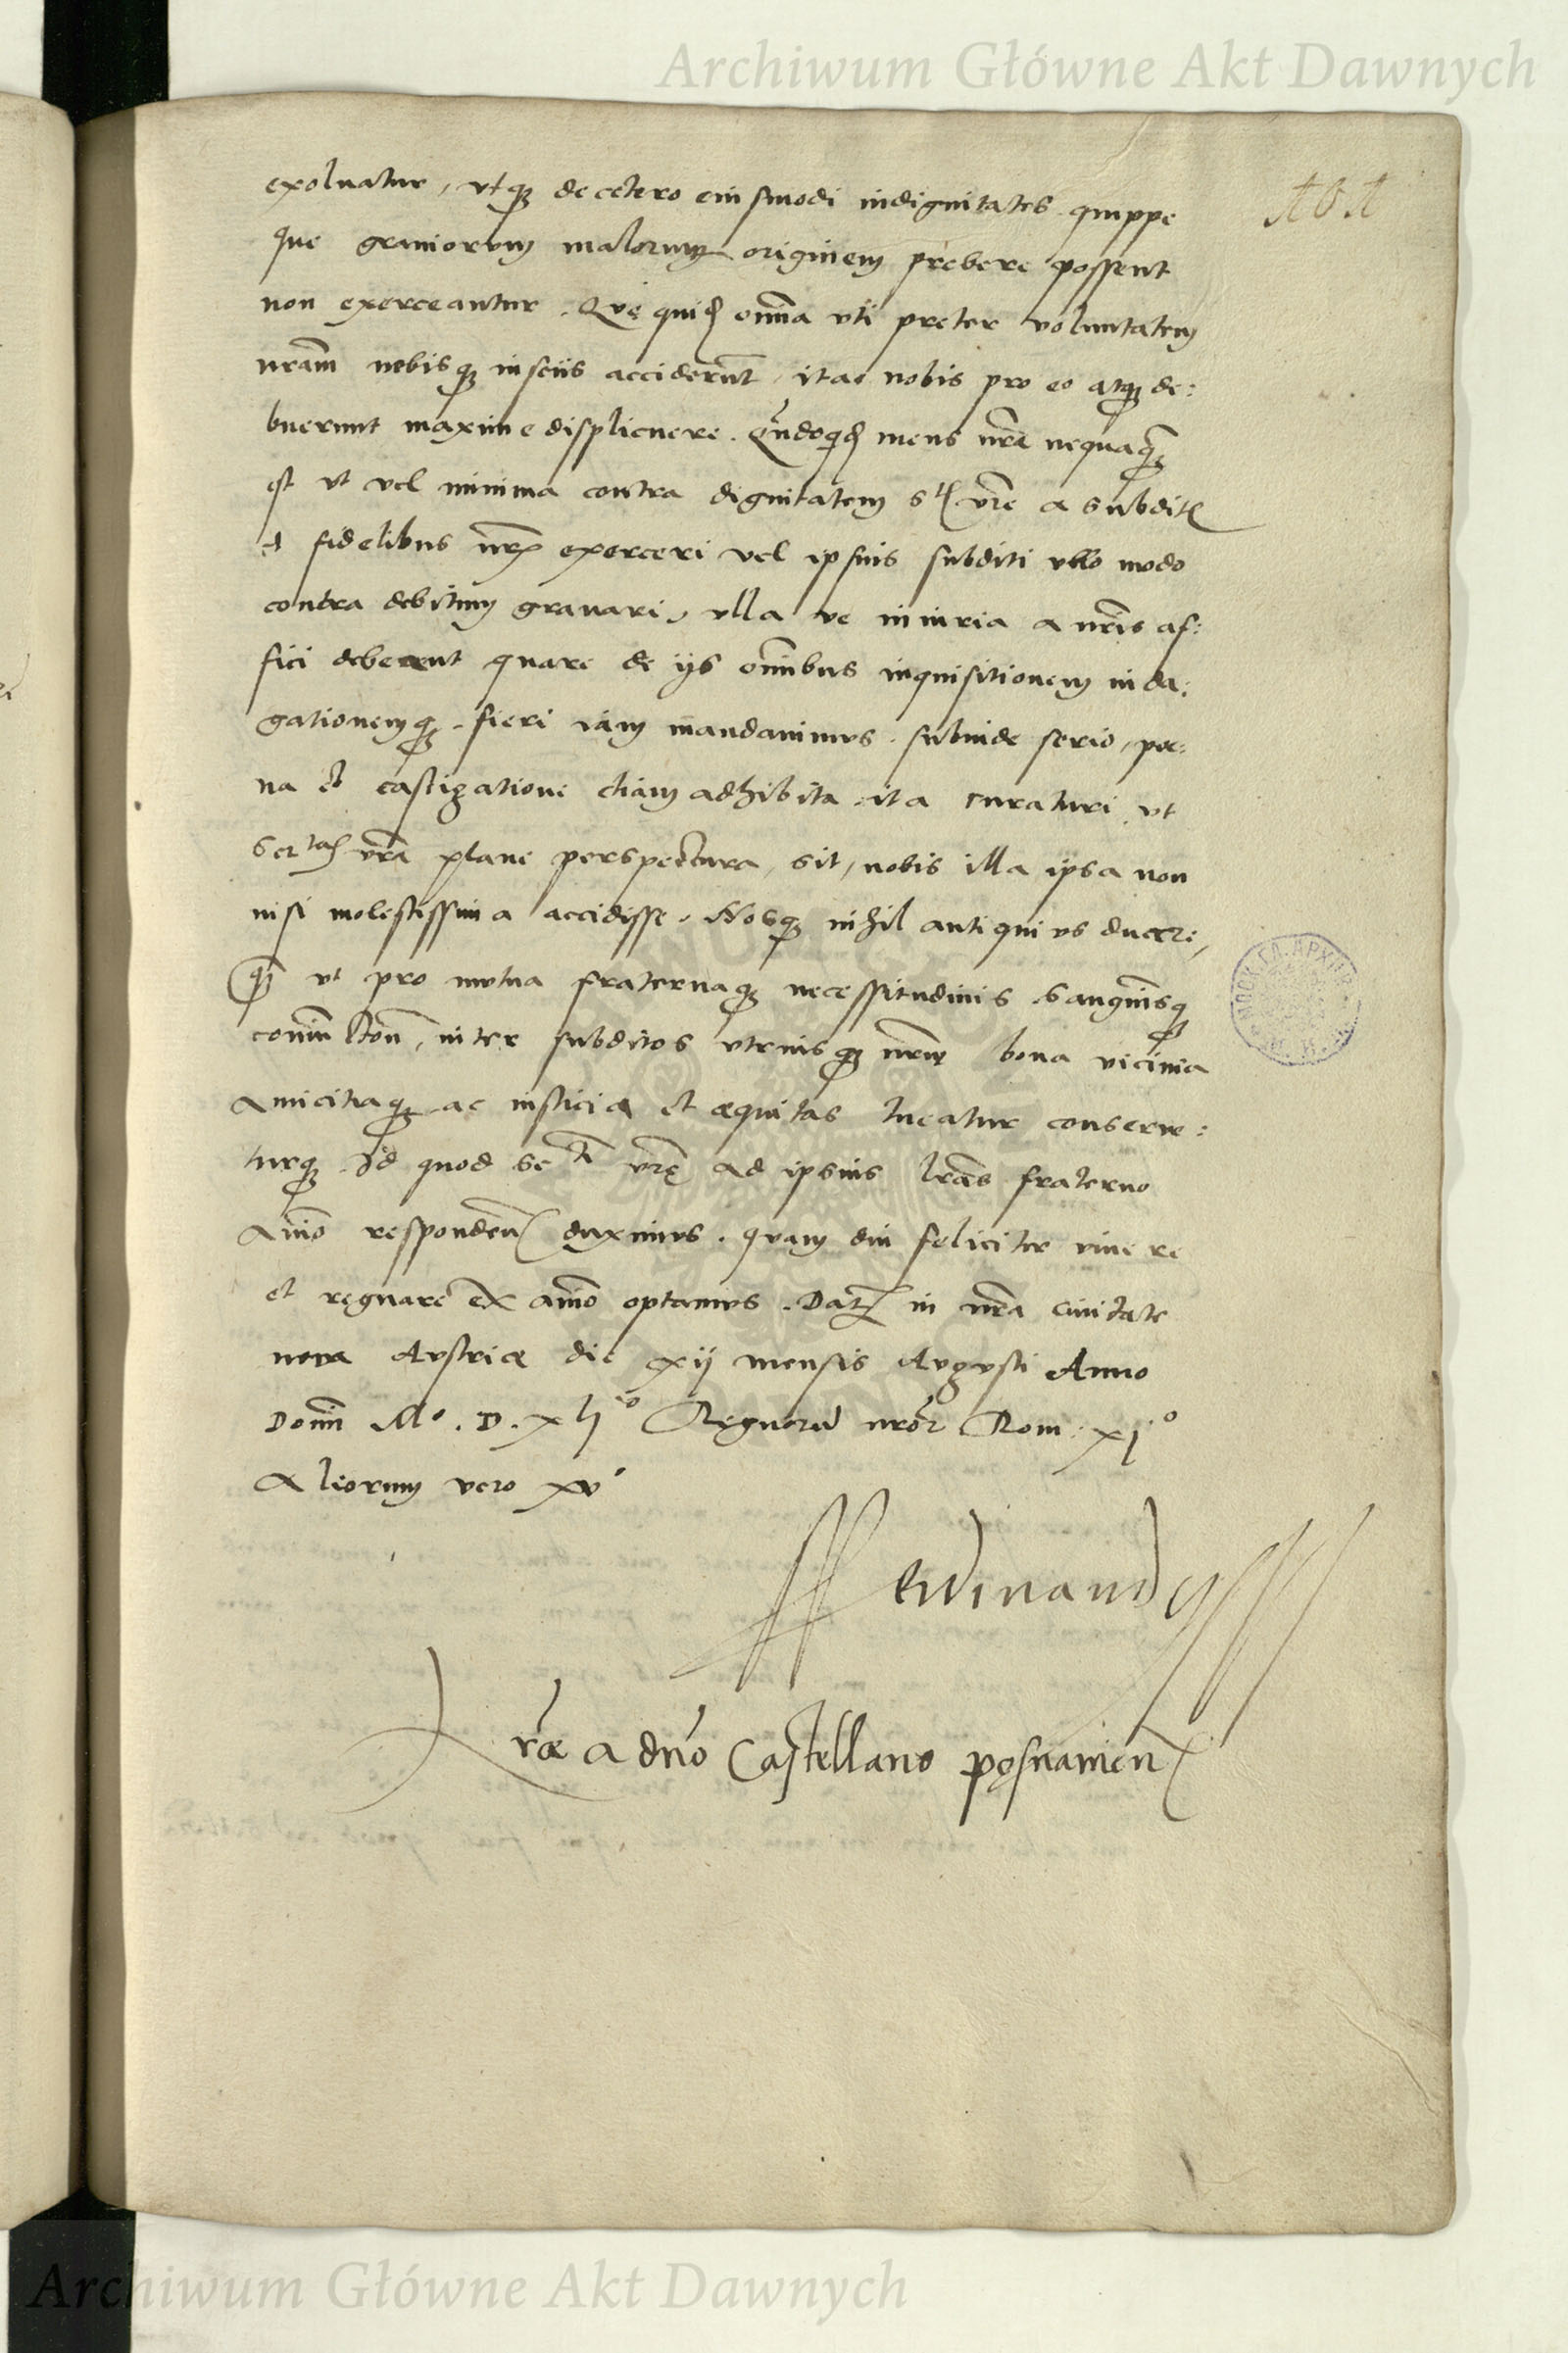 Archiwum Główne Akt Dawnych
exoluatur, vtqꝫ de cetero eiusmodi indignitates quippe
que grauiorum malorum originem prebere possent
non exerceantur. Que quid omnia vti preter voluntatem
nram nobisqꝫ insciis acciderunt, ita nobis pro eo atqꝫ de:
buerunt maxime displicuere. Qndoqd mens nra nequaqꝫ
est vt vel minima contra dignitatem Stis vre a subditis
et fidelibus nris exerceri vel ipsius subditi vllo modo
contra debitum grauari, vlla ve iniuria a nris af:
fici deberent quare de ijs omnibus inquisitionem inda:
gationemqꝫ fieri iam mandauimus. subinde serio, poe:
na et castigatione etiam adhibita ita curaturi vt
Sertas vra plane perspectura sit, nobis illa ipsa non
nisi molestissima accidisse. Nosqꝫ nihil antiquius ducere,
qꝫ vt pro mutua fraternaqꝫ necessitudinis sanguinisqꝫ
coniunction, inter subditos vtriusqꝫ nrum bona vicinia
amicitiaqꝫ ac iusticia et æquitas tueatur conserue:
turqꝫ. Id quod Se ti vrę ad ipsius lras fraterno
animo responden duximus. quam diu feliciter viuere
et regnare ex animo optamus. Dat in nra ciuitate
noua Austriæ die xij mensis Augusti Anno
Domini Mo. D. xljo Regnorum nror Rom. xjo
Aliorum vero xv
Ferdinandus
Lræ a dno Castellano posnanien
Archiwum Główne Akt Dawnych